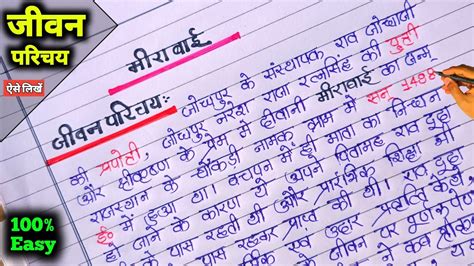 जीवन
परिचय
ऐसे लिखें
मीरा बाई
जीवन परिचय:- जोधपुर के संस्थापक राव जोधाजी
की जोधपुर नरेश राजा रत्नसिंह की पुत्री
और श्रीकृष्ण के प्रेम में दीवानी मीराबाई का जन्म
राजस्थान के चौकड़ी नामक ग्राम में सन् 1498
ई० में हुआ था। बचपन में ही माता का निधन
हो जाने के कारण ये अपने पितामह राव दूदा
के पास रहती थी और प्रारंभिक शिक्षा भी
पास रहकर प्राप्त की थी।
राव दूदा
जीवन पर
100%
Easy